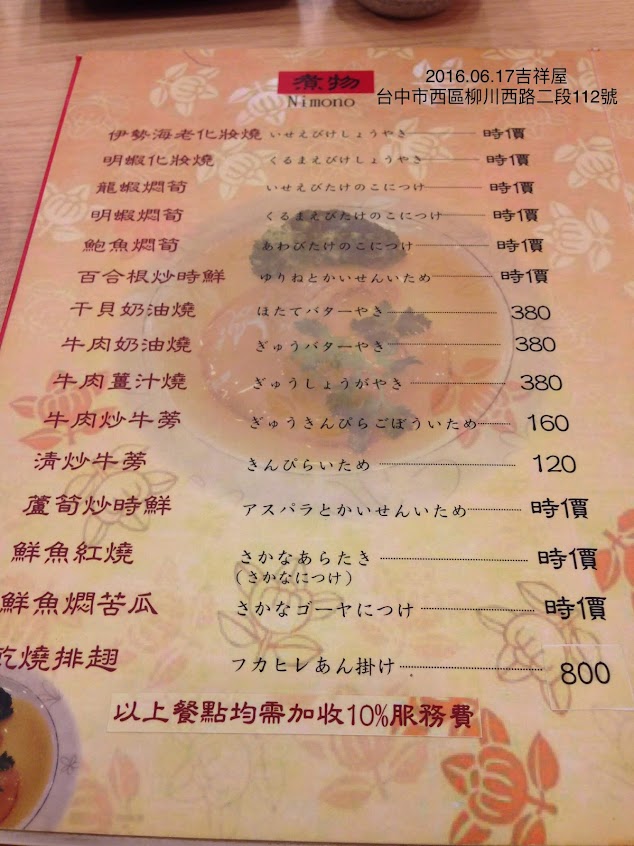 煮物
Nimono
2016.06.17吉祥屋
台中市西區柳川西路二段112號
伊勢海老化妝燒 いせえびけしょうやき 時價
明蝦化妝燒 くるまえびけしょうやき 時價
龍蝦燜筍 いせえびたけのこにつけ 時價
明蝦燜筍 くるまえびたけのこにつけ 時價
鮑魚燜筍 あわびたけのこにつけ 時價
百合根炒時鮮 ゆりねとかいせんいため 時價
干貝奶油燒 ほたてバターやき 380
牛肉奶油燒 ぎゅうバターやき 380
牛肉薑汁燒 ぎゅうしょうがやき 380
牛肉炒牛蒡 ぎゅうきんぴらごぼういため 160
清炒牛蒡 きんぴらいため 120
蘆筍炒時鮮 アスパラとかいせんいため 時價
鮮魚紅燒 さかなあらたき 時價
(さかなにつけ)
鮮魚燜苦瓜 さかなゴーヤにつけ 時價
乾燒排翅 フカヒレあん掛け 800
以上餐點均需加收10%服務費